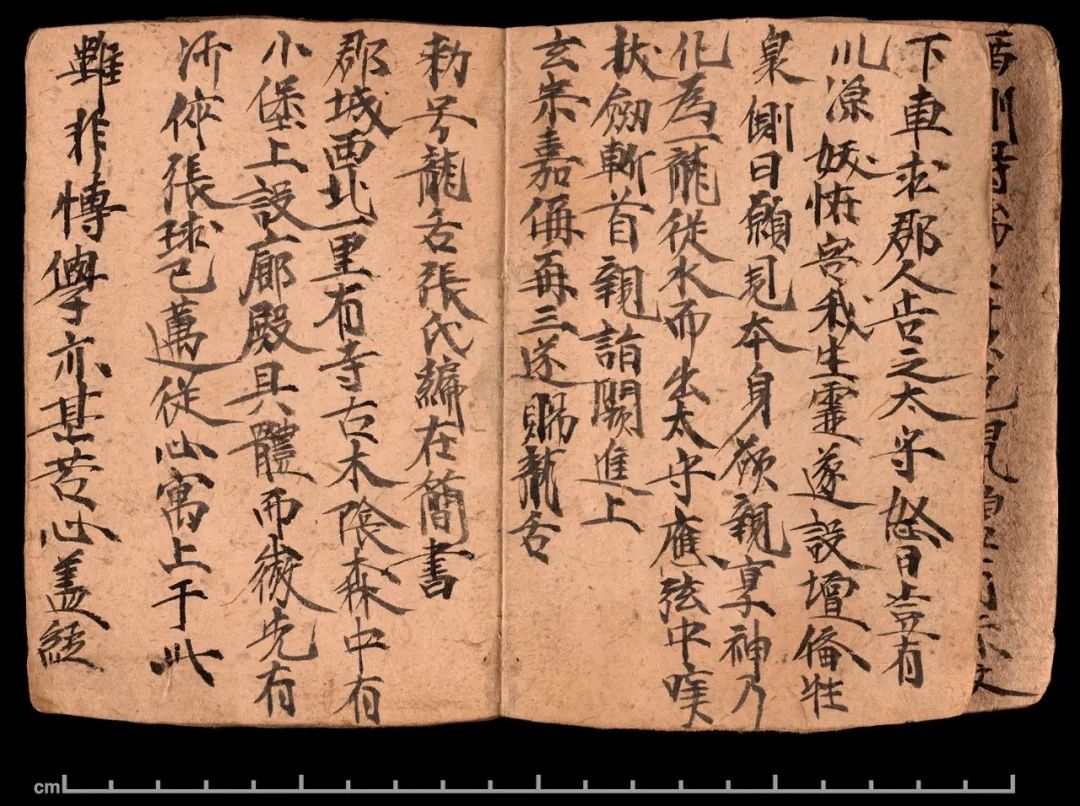 下車求郡人告之太守怒曰豈有
川源妖怪害我生靈遂設壇備牲
泉側曰願見本身欲親享神乃
化為一龍從水而出太守應弦中喉
拔劔斬首親詣闕進上
玄宗嘉稱再三遂賜龍舌
勑号龍舌張氏編在簡書
郡城西北一里有寺古木陰森中有
小堡上設廊殿具體而微先有
沙倅張球已邁從心寓上于此
雖非博學亦甚苦心盖經